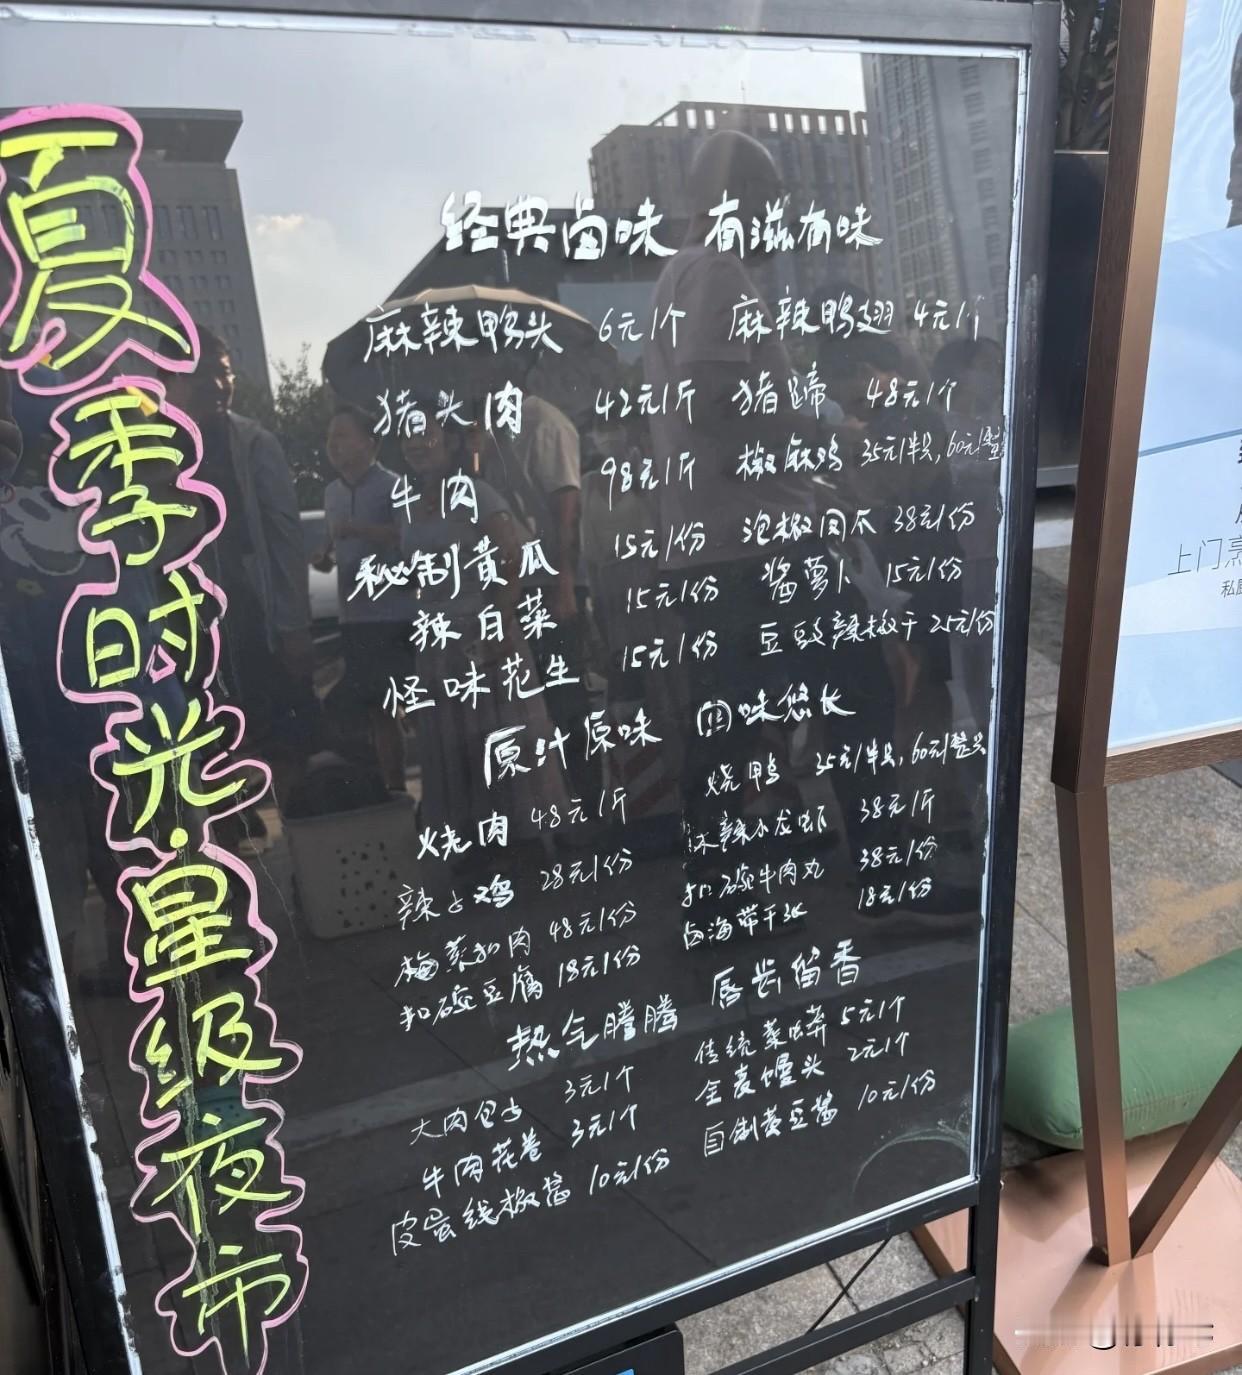 夏季时光·星级夜市
经典卤味 有滋有味
麻辣鸭头 6元/个 麻辣鸭翅 4元/
猪头肉 42元/斤 猪蹄 48元/个
牛肉 98元/斤 椒麻鸡 35元/半只,60元/整
秘制黄瓜 15元/份 泡椒凤爪 38元/份
辣白菜 15元/份 酱萝卜 15元/份
怪味花生 15元/份 豆豉辣椒干 25元/份
原汁原味 回味悠长
烧肉 48元/斤 烧鸭 35元/半只,60元/整只
辣子鸡 28元/份 麻辣小龙虾 38元/斤
梅菜扣肉 48元/份 扣碗牛肉丸 38元/份
扣碗豆腐 18元/份 卤海带千张 18元/份
热气腾腾 唇齿留香
大肉包子 3元/个 传统菜蟒 5元/个
牛肉花卷 3元/个 全麦馒头 2元/个
皮蛋线椒酱 10元/份 自制黄豆酱 10元/份
上门烹
私厨